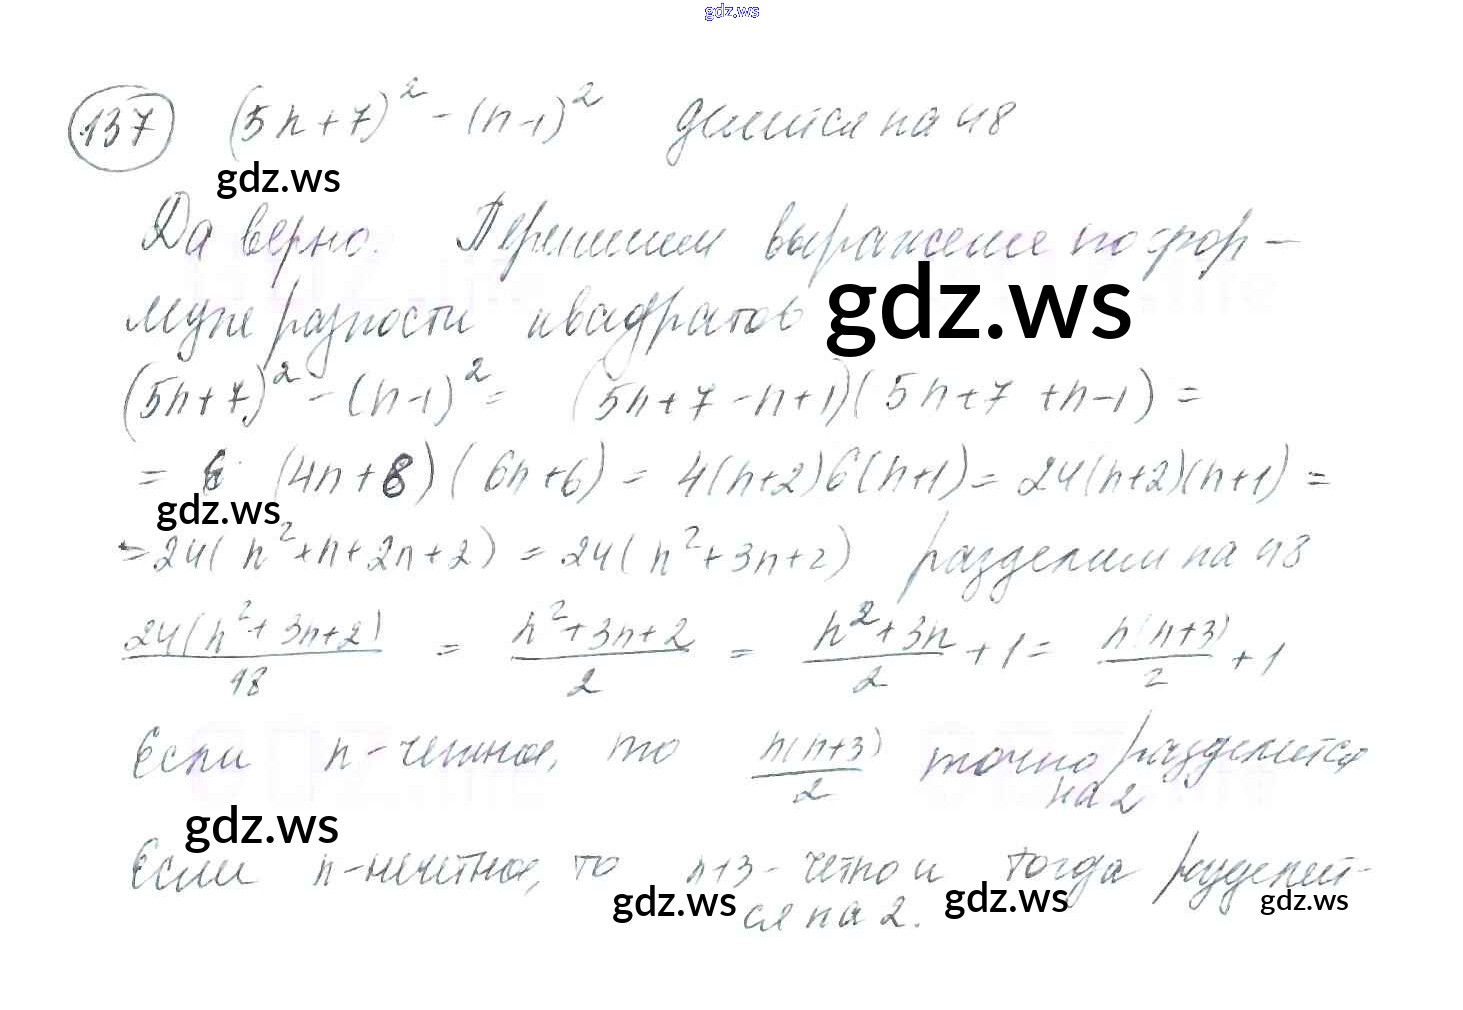 gdz.ws
137 (5n+7)² - (n-1)² делится на 48
gdz.ws
Да верно. Перепишем выражение по фор-
муле разности квадратов
gdz.ws
(5n+7)² - (n-1)² = (5n+7-n+1)(5n+7+n-1) =
= (4n+8)(6n+6) = 4(n+2)6(n+1) = 24(n+2)(n+1) =
gdz.ws
= 24(n²+n+2n+2) = 24(n²+3n+2) разделим на 48
24(n²+3n+2)/48 = n²+3n+2/2 = n²+3n/2 + 1 = n(n+3)/2 + 1
Если n-четное, то n(n+3)/2 точно разделится
на 2
gdz.ws
Если n-нечетное, то n+3 - четно и тогда разделит-
ся на 2.
gdz.ws gdz.ws gdz.ws